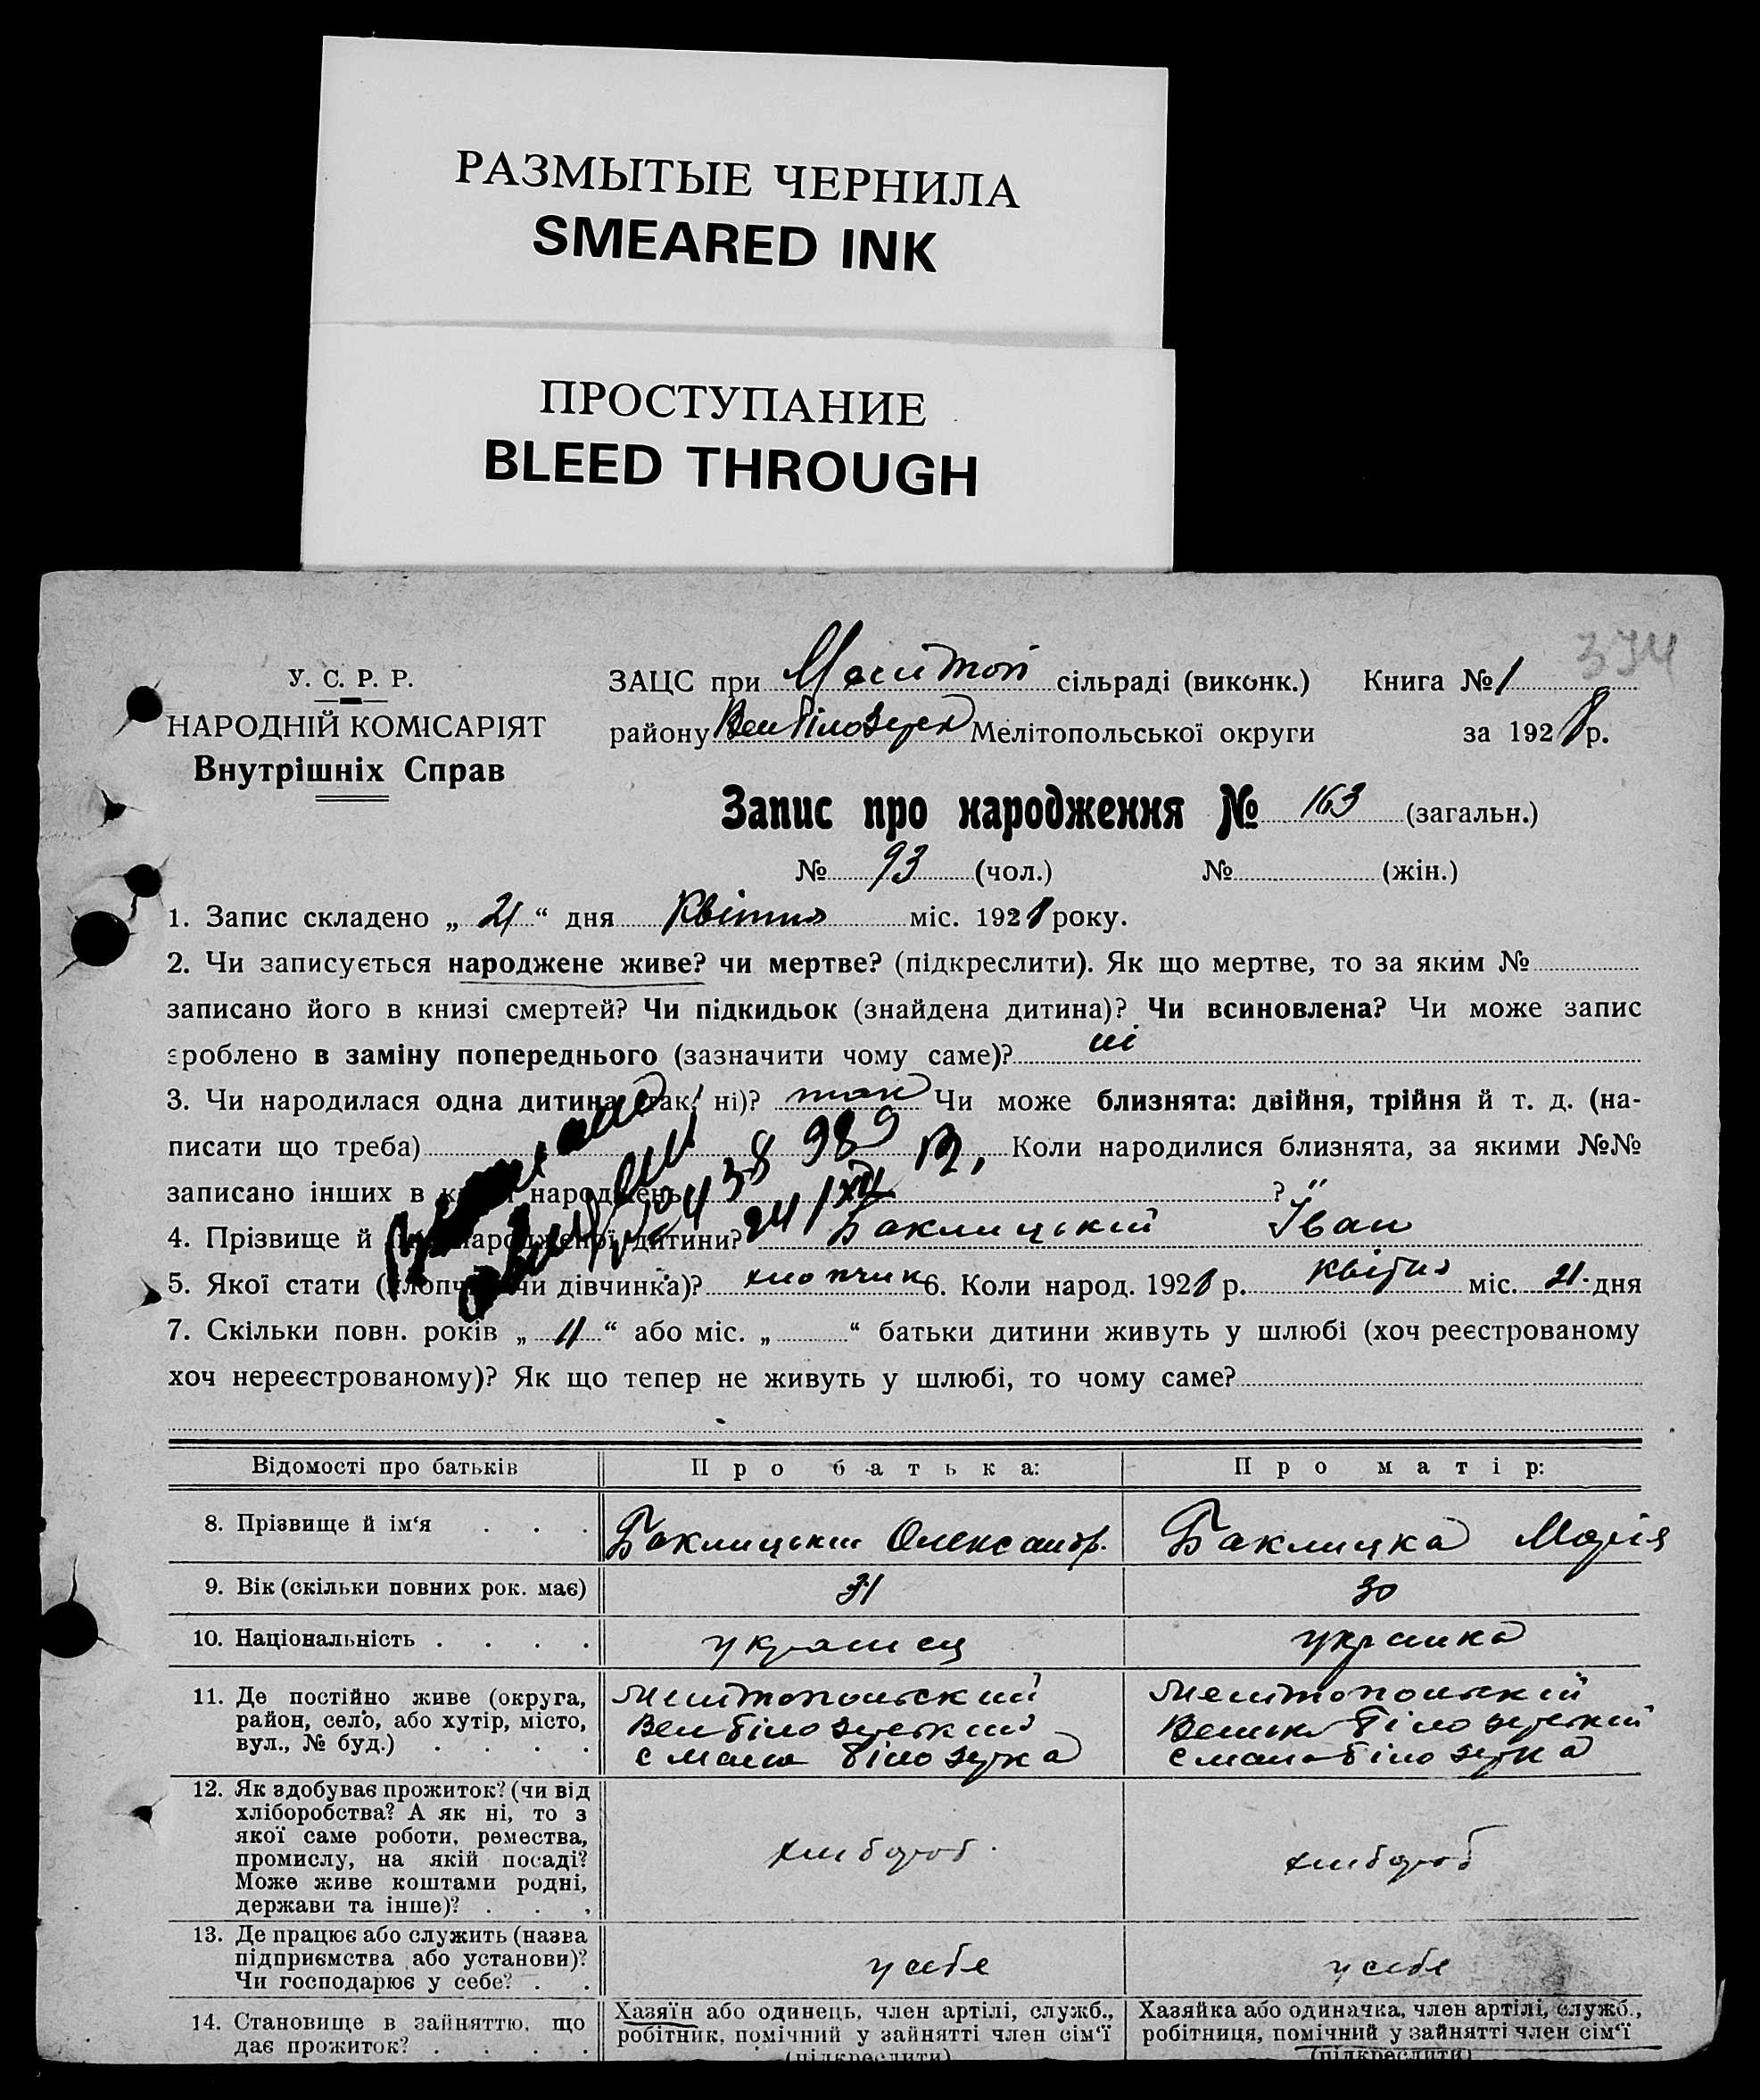 РАЗМЫТЫЕ ЧЕРНИЛА
SMEARED INK
ПРОСТУПАНИЕ
BLEED THROUGH
374
У. С. Р. Р.
НАРОДНІЙ КОМІСАРІЯТ
Внутрішніх Справ
ЗАЦС при сільраді (виконк.) Книга № 1
району Вел Білозерк Мелітопольської округи за 1928 р.
Запис про народження № 163 (загальн.)
№ 93 (чол.) № (жін.)
1. Запис складено „ 21 “ дня Квітня міс. 1928 року.
2. Чи записується народжене живе? чи мертве? (підкреслити). Як що мертве, то за яким №
записано його в книзі смертей? Чи підкидьок (знайдена дитина)? Чи всиновлена? Чи може запис
зроблено в заміну попереднього (зазначити чому саме)? ні
3. Чи народилася одна дитина (так, ні)? так Чи може близнята: двійня, трійня й т. д. (на-
писати що треба) Коли народилися близнята, за якими №№
записано інших в книзі народжень ?
438 989
24/XII
4. Прізвище й народженої дитини? Баклицький Іван
5. Якої стати (хлопчик чи дівчинка)? хлопчик 6. Коли народ. 1928 р. квітня міс. 21 дня
7. Скільки повн. років „ 11 “ або міс. „ “ батьки дитини живуть у шлюбі (хоч реєстрованому
хоч нереєстрованому)? Як що тепер не живуть у шлюбі, то чому саме?
Відомості про батьків Про батька: Про матір:
8. Прізвище й ім‘я . . . Баклицький Олександр. Баклицка Марія
9. Вік (скільки повних рок. має) 31 30
10. Національність . . . . українец українка
11. Де постійно живе (округа,
район, село, або хутір, місто,
вул., № буд.) . . . .
Мелітопольский
Вел Білозерський
с Мала Білозерка
Мелітопольській
Велико Білозерській
с Мала Білозерка
12. Як здобуває прожиток? (чи від
хліборобства? А як ні, то з
якої саме роботи, ремества,
промислу, на якій посаді?
Може живе коштами родні,
держави та інше)? . . .
хлібороб. хлібороб
13. Де працює або служить (назва
підприємства або установи)?
Чи господарює у себе? . .
у себе у себе
14. Становище в зайняттю, що
дає прожиток? . . . .
Хазяїн або одинець, член артілі, служб.,
робітник, помічний у зайнятті член сім‘ї
(підкреслити)
Хазяйка або одиначка, член артілі, служб.,
робітниця, помічний у зайнятті член сім‘ї
(підкреслити)